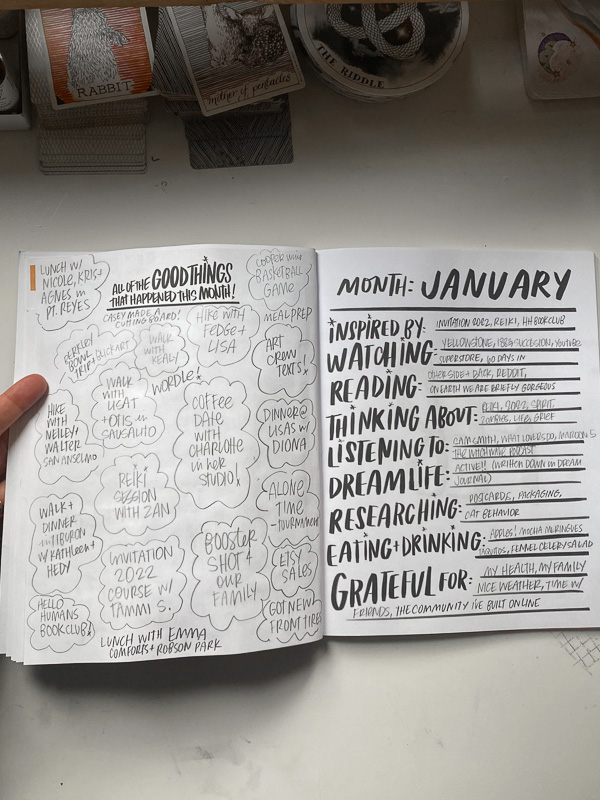 RABBIT
mother of pentacles
THE RIDDLE
ALL OF THE GOOD THINGS
THAT HAPPENED THIS MONTH!
LUNCH W/
NICOLE, KRIS+
AGNES in
PT. REYES
CASEY MADE A
CUTTING BOARD!
HIKE WITH
FEDGE +
LISA
COOPER
BASKETBALL
GAME
MEALPREP
WALK
WITH
KEALY
BOWL
TRIP + BLICK ART
ART
CREW
TEXTS!
WORDLE
WALK
WITH
LISA T
+ OTIS in
SAUSALITO
HIKE
WITH
NELLEY+
WALTER
SAN ANSELMO
COFFEE
DATE
WITH
CHARLOTTE
in HER
STUDIO!
DINNER @
LISAS W/
DIONA
REIKI
SESSION
WITH ZAN
ALONE
TIME
- TOURNAMENT
WALK +
DINNER
in TIBURON
W/ KATHLEEN +
HEDY
INVITATION
2022
COURSE W/
TAMMI S.
BOOSTER
SHOT 4
OUR
FAMILY
ETSY
SALES
HELLO
HUMANS
BOOKCLUB!
GOT NEW
FRONT TIRES
LUNCH WITH EMMA
COMFORTS + ROBSON PARK
MONTH: JANUARY
INSPIRED BY: INVITATION 2022, REIKI, HH BOOKCLUB
WATCHING: YELLOWSTONE, 1883, SUCCESSION, YOUTUBE
SUPERSTORE, 60 DAYS IN
READING: OTHER SIDE + BACK, REDDIT,
ON EARTH WE ARE BRIEFLY GORGEOUS
THINKING ABOUT: REIKI, 2022, SPIRIT
ZOMBIES, LIFE, GRIEF
LISTENING TO: SAM SMITH, WHAT LOVERS DO, MAROON 5
THE WITCH WAVE PODCAST
DREAM LIFE: ACTIVE!! (WRITTEN DOWN in DREAM
JOURNAL)
RESEARCHING: POSTCARDS, PACKAGING,
CAT BEHAVIOR
EATING + DRINKING: APPLES! MOCHA MERINGUES
TAQUITOS, FENNEL CELERY SALAD
GRATEFUL FOR: MY HEALTH, MY FAMILY
NICE WEATHER, TIME W/
FRIENDS, THE COMMUNITY I'VE BUILT ONLINE